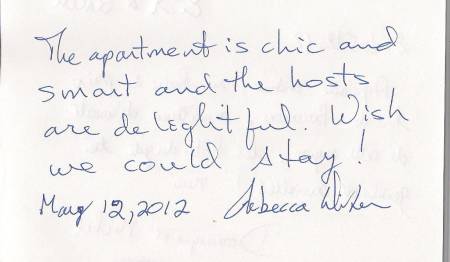 The apartment is chic and
smart and the hosts
are deleghtful. Wish
we could stay!
May 12, 2012 Rebecca